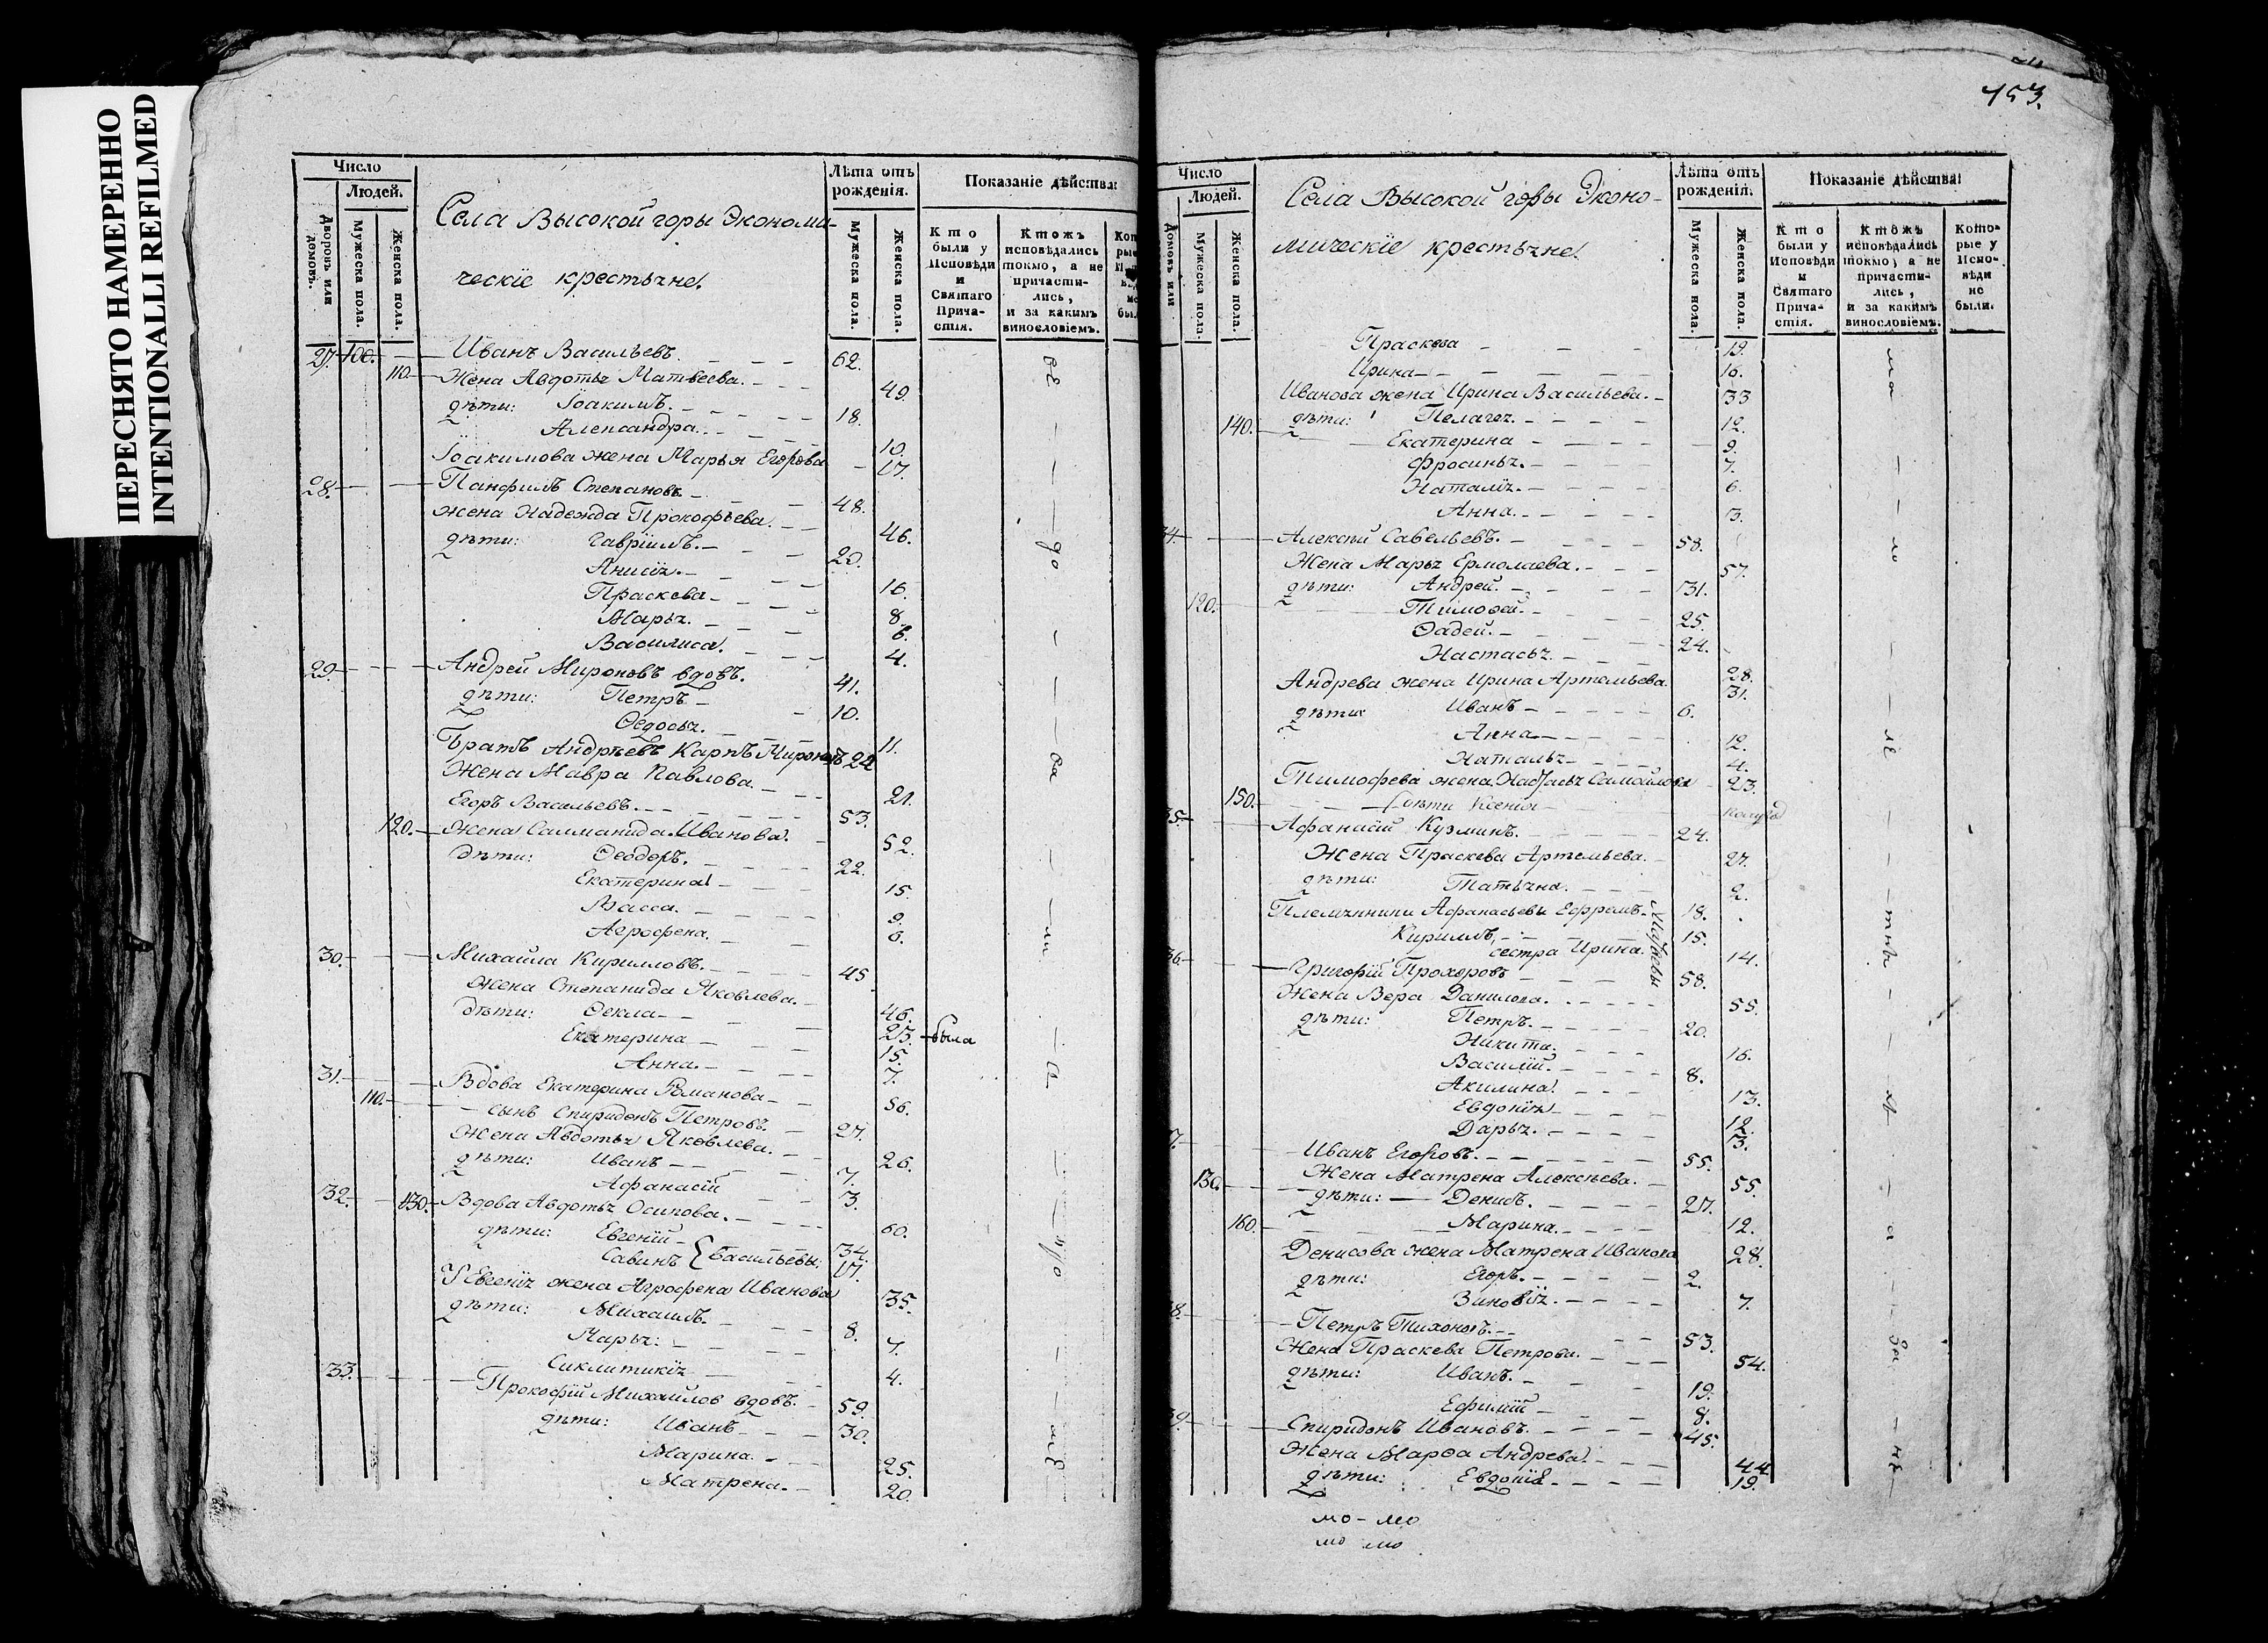 ПЕРЕСНЯТО НАМЕРЕННО
INTENTIONALLI REFILMED
Число
Людей.
Дворовъ или домовъ.
Мужеска пола.
Женска пола.
Села Высокой горы Экономи-
ческіе крестьяне.
Лѣта отъ рожденія.
Мужеска пола.
Женска пола.
Показаніе дѣйства
Кто были у Исповѣди и Святаго Прича-стія.
Ктожъ исповѣдались токмо, а не причасти-лись, и за какимъ винословіемъ.
27. 100. Иванъ Васильевъ. 62.
110. Жена Авдотья Матвеева. 49.
дѣти: Іоакимъ. 18.
Александра. 10.
Іоакимова жена Марья Егорова 17.
28. Панфилъ Степановъ 48.
жена Надежда Прокофьева. 46.
дѣти: Гавріилъ. 20.
Анисія. 16.
Праскева 8.
Марья. 6.
Василиса. 4.
29. Андрей Мироновъ вдовъ. 41.
дѣти: Петръ 10.
Ѳедосья. 11.
Братъ Андреевъ Карпъ Мироновъ 22
Жена Мавра Павлова. 21.
Егоръ Васильевъ. 53.
120. Жена Саламанида Иванова. 52.
дѣти: Ѳеодоръ. 22.
Екатерина 15.
Васса. 9.
Агрофена. 6.
30. Михаила Кирилловъ. 45
Жена Степанида Яковлева. 46.
дѣти: Ѳекла 23. была
Екатерина 15.
Анна. 7.
31. Вдова Екатерина Романова 56.
110. сынъ Спиридонъ Петровъ. 27.
Жена Авдотья Яковлева. 26.
дѣти: Иванъ 7.
Афанасій 3.
32. 130. Вдова Авдотья Осипова. 60.
дѣти: Евгеній 34.
Савинъ Васильевы 17.
У Евгенія жена Агрофена Иванова 35.
дѣти: Михаилъ. 8.
Марья: 7.
Сиклитикія 4.
33. Прокофій Михайлов вдовъ. 59.
дѣти: Иванъ 30.
Марина. 25.
Матрена. 20.
153.
Число
Людей.
Домовъ или
Мужеска пола
Женска пола.
Села Высокой горы Эконо-
мическіе крестьяне.
Лѣта отъ рожденія.
Мужеска пола.
Женска пола.
Показаніе дѣйства
Кто были у Исповѣди и Святаго Прича-стія.
Ктожъ исповѣдались токмо, а не причасти-лись, и за какимъ винословіемъ.
Кото-рые у Испо-вѣди не были.
Праскева 19.
Ирина 16.
Иванова жена Ирина Васильева. 33
140. дѣти: Пелагея. 12.
Екатерина 9.
Фросинья. 7.
Наталія. 6.
Анна. 3.
34. Алексѣй Савельевъ. 58.
Жена Марья Ермолаева. 57.
120. дѣти: Андрей. 31.
Тимоѳей. 25.
Ѳадей. 24.
Настасья. 28.
Андрева жена Ирина Артемьева. 31.
дѣти: Иванъ 6.
Анна 12.
Наталья 4.
Тимофева жена Настасья Самойлова 23.
150. дѣти Ксенія
35. Афанасій Кузминъ. 24.
Жена Праскева Артемьева. 27.
дѣти: Татьяна. 2.
Племянники Афанасьевы Ефремъ. 18.
Кириллъ 15.
сестра Ирина. 14.
36. Григорій Прохоровъ 58.
Жена Вера Данилова. 55.
дѣти: Петръ. 20.
Никита. 16.
Василій. 8.
Акилина. 13.
Евдокія 12.
Дарья. 3.
37. Иванъ Егоровъ. 55.
130. Жена Матрена Алексѣева. 55.
дѣти: Денисъ. 27.
160. Марина. 12.
Денисова жена Матрена Иванова 28.
дѣти: Егоръ. 2.
Зиновія. 7.
38. Петръ Тихоновъ. 53.
Жена Праскева Петрова. 54.
дѣти: Иванъ. 19.
Ефимій 8.
39. Спиридонъ Ивановъ. 45.
Жена Марѳа Андрева. 44
дѣти: Евдокія. 19.